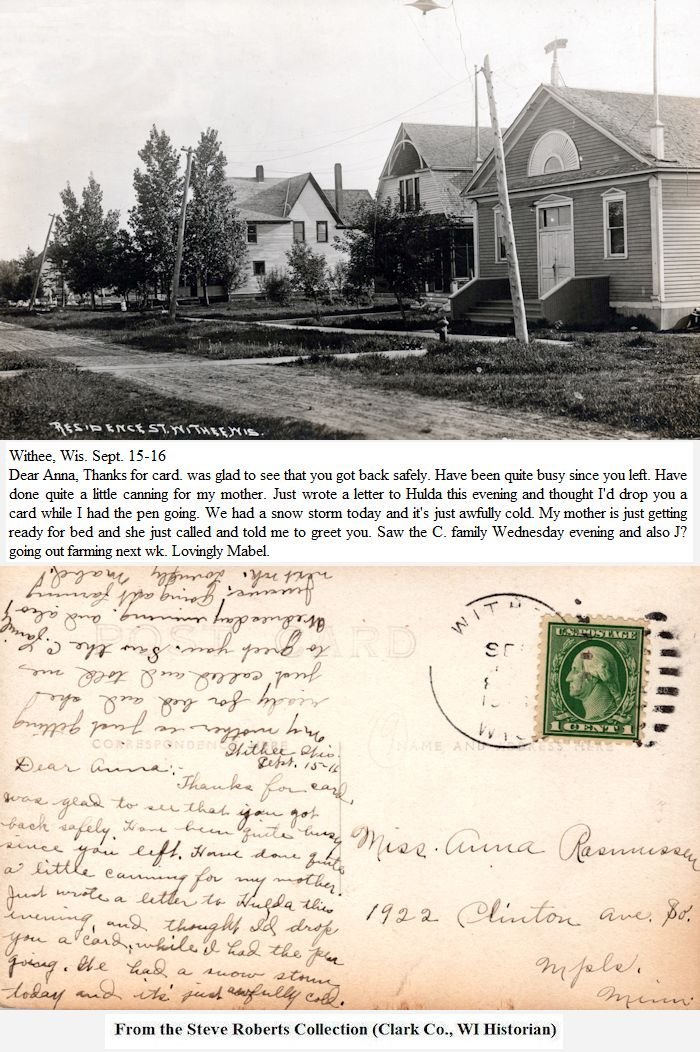 RESIDENCE ST. WITHEE, WIS.
Withee, Wis. Sept. 15-16
Dear Anna, Thanks for card. was glad to see that you got back safely. Have been quite busy since you left. Have
done quite a little canning for my mother. Just wrote a letter to Hulda this evening and thought I'd drop you a
card while I had the pen going. We had a snow storm today and it's just awfully cold. My mother is just getting
ready for bed and she just called and told me to greet you. Saw the C. family Wednesday evening and also J?
going out farming next wk. Lovingly Mabel.
POST CARD
CORRESPONDENCE HERE
NAME AND ADDRESS HERE
WITH
SE
WIS
U.S. POSTAGE
1 CENT 1
Withee Wis.
Sept. 15-16
Dear Anna:-
Thanks for card,
was glad to see that you got
back safely. Have been quite busy
since you left. Have done quite
a little canning for my mother.
Just wrote a letter to Hulda this
evening, and thought I'd drop
you a card, while I had the pen
going. We had a snow storm
today and it's just awfully cold.
My mother is just getting
ready for bed and she
just called and told me
to greet you. Saw the C. family
Wednesday evening and also
going out farming
next wk. Lovingly Mabel.
Miss. Anna Rasmussen
1922 Clinton Ave. So.
Mpls.
Minn
From the Steve Roberts Collection (Clark Co., WI Historian)